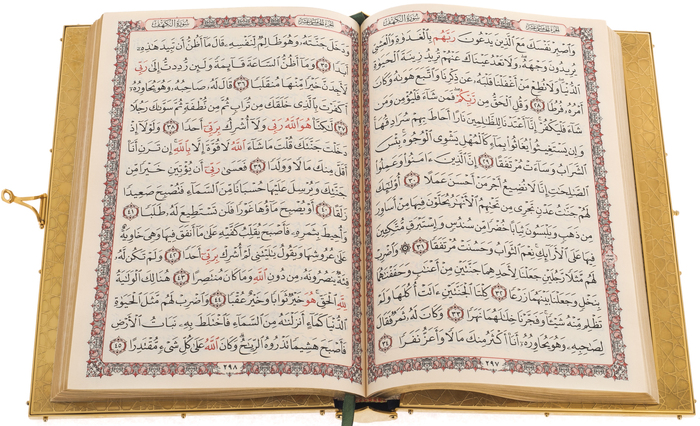 الجزء الخامس عشر
سورة الكهف
وَاصْبِرْ نَفْسَكَ مَعَ الَّذِينَ يَدْعُونَ رَبَّهُم بِالْغَدَوٰةِ وَالْعَشِيِّ
يُرِيدُونَ وَجْهَهُ وَلَا تَعْدُ عَيْنَاكَ عَنْهُمْ تُرِيدُ زِينَةَ الْحَيَوٰةِ
الدُّنْيَا وَلَا تُطِعْ مَنْ أَغْفَلْنَا قَلْبَهُ عَن ذِكْرِنَا وَاتَّبَعَ هَوَىٰهُ وَكَانَ
أَمْرُهُ فُرُطًا ٢٨ وَقُلِ الْحَقُّ مِن رَّبِّكُمْ فَمَن شَاءَ فَلْيُؤْمِن وَمَن
شَاءَ فَلْيَكْفُرْ إِنَّا أَعْتَدْنَا لِلظَّٰلِمِينَ نَارًا أَحَاطَ بِهِمْ سُرَادِقُهَا
وَإِن يَسْتَغِيثُوا يُغَاثُوا بِمَاءٍ كَالْمُهْلِ يَشْوِي الْوُجُوهَ بِئْسَ
الشَّرَابُ وَسَاءَتْ مُرْتَفَقًا ٢٩ إِنَّ الَّذِينَ ءَامَنُوا وَعَمِلُوا
الصَّٰلِحَٰتِ إِنَّا لَا نُضِيعُ أَجْرَ مَنْ أَحْسَنَ عَمَلًا ٣٠ أُولَٰئِكَ
لَهُمْ جَنَّٰتُ عَدْنٍ تَجْرِي مِن تَحْتِهِمُ الْأَنْهَٰرُ يُحَلَّوْنَ فِيهَا مِنْ أَسَاوِرَ
مِن ذَهَبٍ وَيَلْبَسُونَ ثِيَابًا خُضْرًا مِّن سُندُسٍ وَإِسْتَبْرَقٍ مُّتَّكِـِٔينَ
فِيهَا عَلَى الْأَرَائِكِ نِعْمَ الثَّوَابُ وَحَسُنَتْ مُرْتَفَقًا ٣١ وَاضْرِبْ
لَهُم مَّثَلًا رَّجُلَيْنِ جَعَلْنَا لِأَحَدِهِمَا جَنَّتَيْنِ مِنْ أَعْنَٰبٍ وَحَفَفْنَٰهُمَا
بِنَخْلٍ وَجَعَلْنَا بَيْنَهُمَا زَرْعًا ٣٢ كِلْتَا الْجَنَّتَيْنِ ءَاتَتْ أُكُلَهَا وَلَمْ
تَظْلِم مِّنْهُ شَيْـًٔا وَفَجَّرْنَا خِلَٰلَهُمَا نَهَرًا ٣٣ وَكَانَ لَهُ ثَمَرٌ فَقَالَ
لِصَٰحِبِهِ وَهُوَ يُحَاوِرُهُ أَنَا أَكْثَرُ مِنكَ مَالًا وَأَعَزُّ نَفَرًا ٣٤
٢٩٧
الجزء الخامس عشر
سورة الكهف
وَدَخَلَ جَنَّتَهُ وَهُوَ ظَالِمٌ لِّنَفْسِهِ قَالَ مَا أَظُنُّ أَن تَبِيدَ هَٰذِهِ
أَبَدًا ٣٥ وَمَا أَظُنُّ السَّاعَةَ قَائِمَةً وَلَئِن رُّدِدتُّ إِلَىٰ رَبِّي
لَأَجِدَنَّ خَيْرًا مِّنْهَا مُنقَلَبًا ٣٦ قَالَ لَهُ صَاحِبُهُ وَهُوَ يُحَاوِرُهُ
أَكَفَرْتَ بِالَّذِي خَلَقَكَ مِن تُرَابٍ ثُمَّ مِن نُّطْفَةٍ ثُمَّ سَوَّىٰكَ رَجُلًا
٣٧ لَّٰكِنَّا هُوَ اللَّهُ رَبِّي وَلَا أُشْرِكُ بِرَبِّي أَحَدًا ٣٨ وَلَوْلَا إِذْ
دَخَلْتَ جَنَّتَكَ قُلْتَ مَا شَاءَ اللَّهُ لَا قُوَّةَ إِلَّا بِاللَّهِ إِن تَرَنِ أَنَا
أَقَلَّ مِنكَ مَالًا وَوَلَدًا ٣٩ فَعَسَىٰ رَبِّي أَن يُؤْتِيَنِ خَيْرًا مِّن
جَنَّتِكَ وَيُرْسِلَ عَلَيْهَا حُسْبَانًا مِّنَ السَّمَاءِ فَتُصْبِحَ صَعِيدًا
زَلَقًا ٤٠ أَوْ يُصْبِحَ مَاؤُهَا غَوْرًا فَلَن تَسْتَطِيعَ لَهُ طَلَبًا ٤١
وَأُحِيطَ بِثَمَرِهِ فَأَصْبَحَ يُقَلِّبُ كَفَّيْهِ عَلَىٰ مَا أَنفَقَ فِيهَا وَهِيَ خَاوِيَةٌ
عَلَىٰ عُرُوشِهَا وَيَقُولُ يَٰلَيْتَنِي لَمْ أُشْرِكْ بِرَبِّي أَحَدًا ٤٢ وَلَمْ تَكُن لَّهُ
فِئَةٌ يَنصُرُونَهُ مِن دُونِ اللَّهِ وَمَا كَانَ مُنتَصِرًا ٤٣ هُنَالِكَ الْوَلَٰيَةُ
لِلَّهِ الْحَقِّ هُوَ خَيْرٌ ثَوَابًا وَخَيْرٌ عُقْبًا ٤٤ وَاضْرِبْ لَهُم مَّثَلَ الْحَيَوٰةِ
الدُّنْيَا كَمَاءٍ أَنزَلْنَٰهُ مِنَ السَّمَاءِ فَاخْتَلَطَ بِهِ نَبَاتُ الْأَرْضِ
فَأَصْبَحَ هَشِيمًا تَذْرُوهُ الرِّيَٰحُ وَكَانَ اللَّهُ عَلَىٰ كُلِّ شَيْءٍ مُّقْتَدِرًا ٤٥
٢٩٨